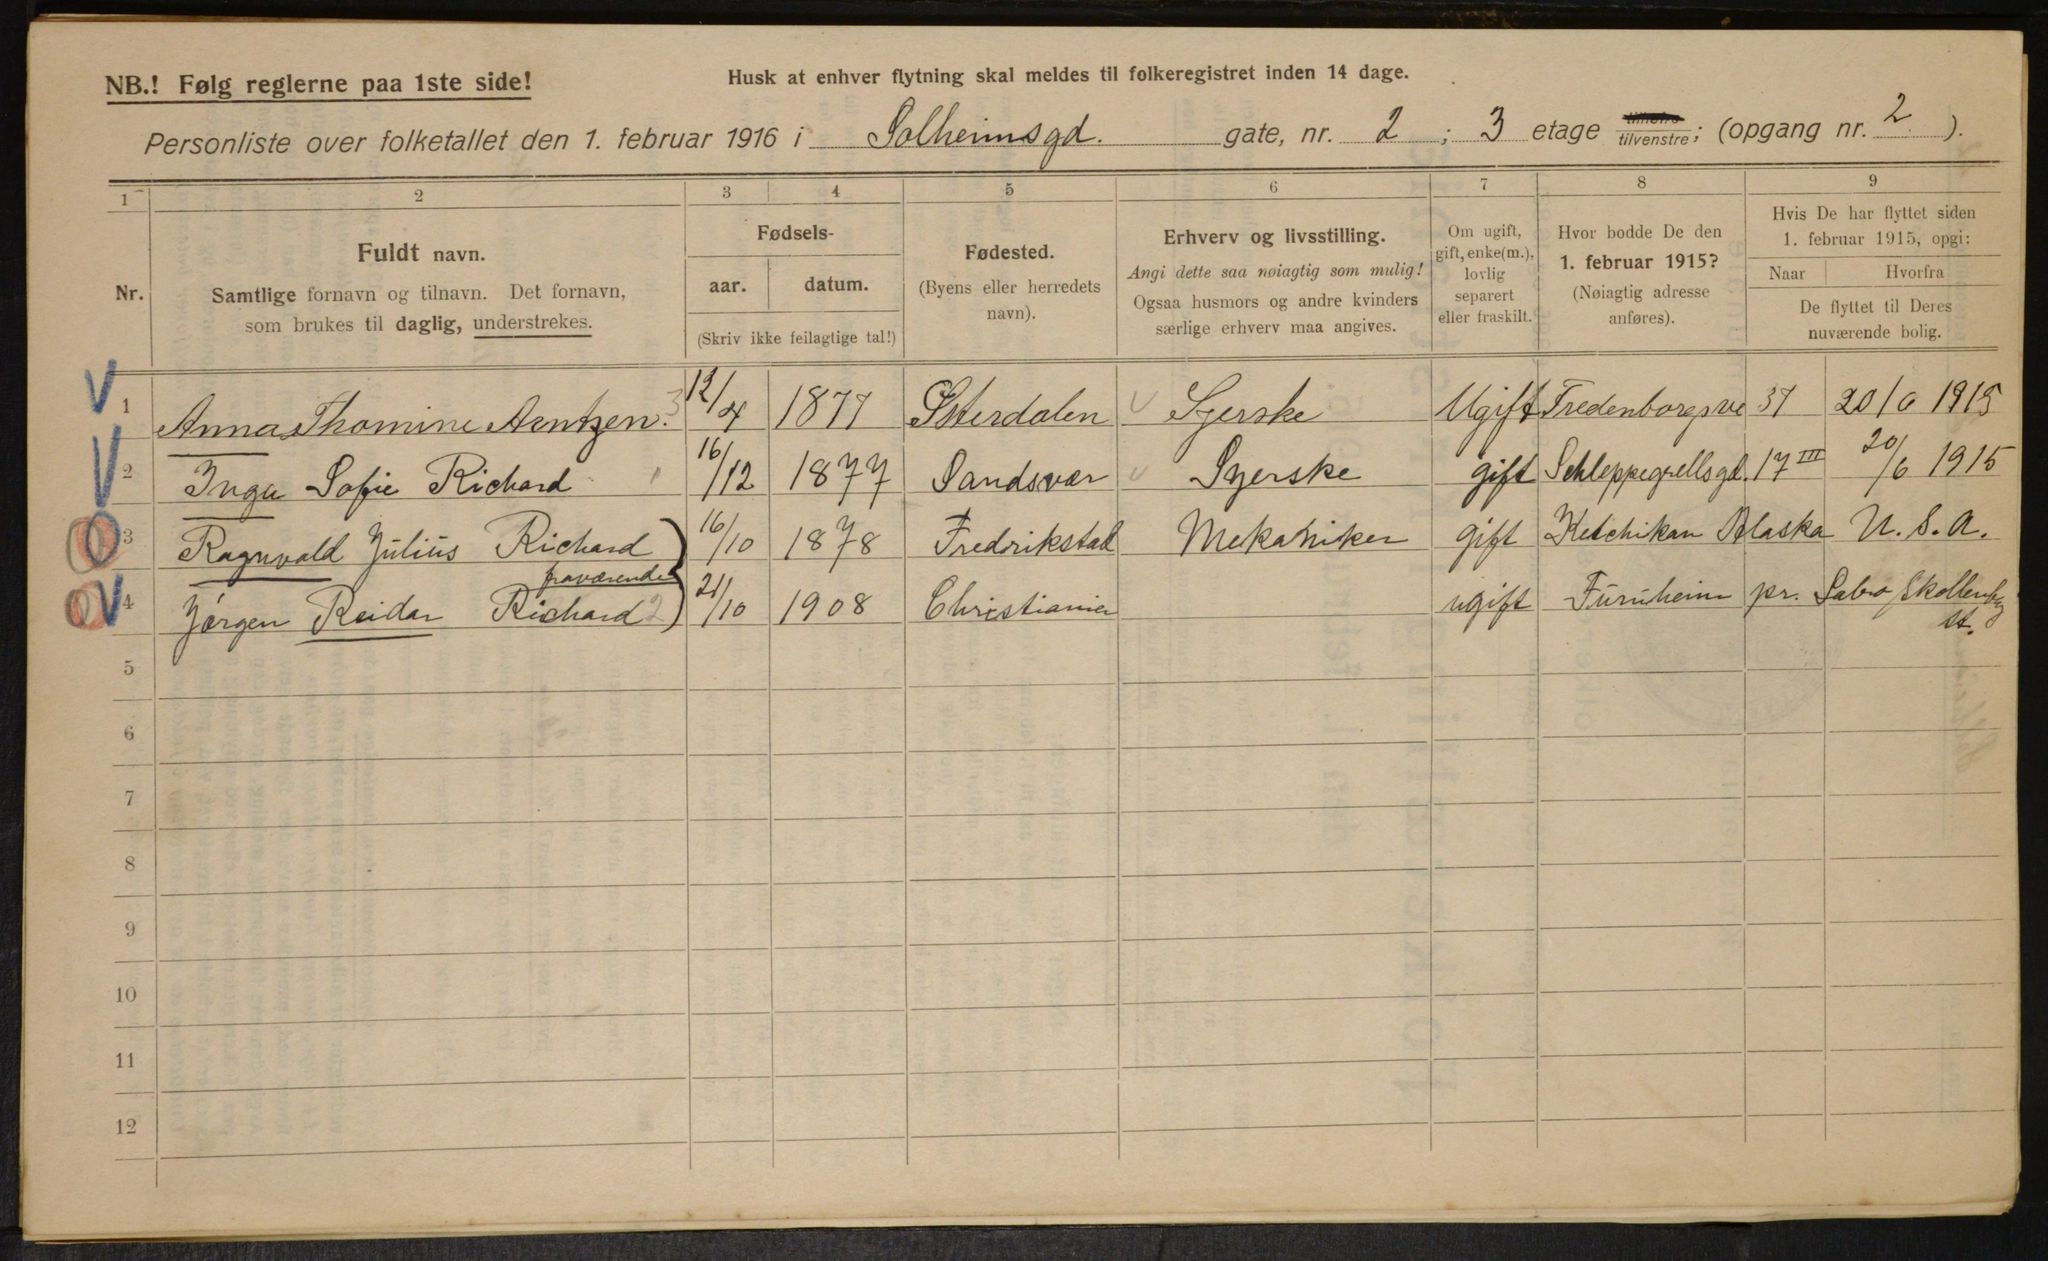 NB.! Følg reglerne paa 1ste side!
Husk at enhver flytning skal meldes til folkeregistret inden 14 dage.
Personliste over folketallet den 1. februar 1916 i Solheimsgd. gate, nr. 2 ; 3 etage tilvenstre; (opgang nr. 2 ).
1 2 3 4 5 6 7 8 9
Nr.
Fuldt navn.
Samtlige fornavn og tilnavn. Det fornavn,
som brukes til daglig, understrekes.
Fødsels-
aar. datum.
(Skriv ikke feilagtige tal!)
Fødested.
(Byens eller herredets
navn).
Erhverv og livsstilling.
Angi dette saa nøiagtig som mulig!
Ogsaa husmors og andre kvinders
særlige erhverv maa angives.
Om ugift,
gift, enke(m.),
lovlig
separert
eller fraskilt.
Hvor bodde De den
1. februar 1915?
(Nøiagtig adresse
anføres).
Hvis De har flyttet siden
1. februar 1915, opgi:
Naar Hvorfra
De flyttet til Deres
nuværende bolig.
1 Anna Thomine Arntzen. 3 12/4 1877 Østerdalen Syerske Ugift Fredenborgsve 37 20/6 1915
2 Inga Sofie Richard 16/12 1877 Sandsvær Syerske gift Schleppegrellsgd. 17 III 20/6 1915
3 Ragnvald Julius Richard 16/10 1878 Fredrikstad Mekaniker gift Ketchikan Alaska U. S. A.
fraværende
4 Jørgen Reidar Richard 2 21/10 1908 Christiania ugift Furuheim pr. Labro Skollenborg
st.
5
6
7
8
9
10
11
12